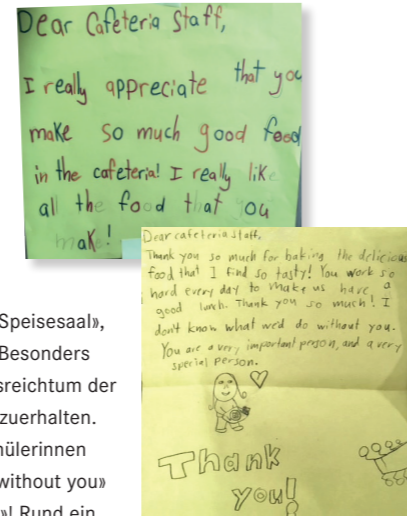 Dear Cafeteria Staff,
I really appreciate that you
make so much good food
in the cafeteria! I really like
all the food that you
make!
Dear cafeteria staff,
Thank you so much for baking the delicious
food that I find so tasty! You work so
hard every day to make us have a
good lunch. Thank you so much! I
don't know what we'd do without you.
You are a very important person, and a very
special person.
Thank
you!
Speisesaal»,
Besonders
sreichtum der
zuerhalten.
hülerinnen
without you»
»! Rund ein